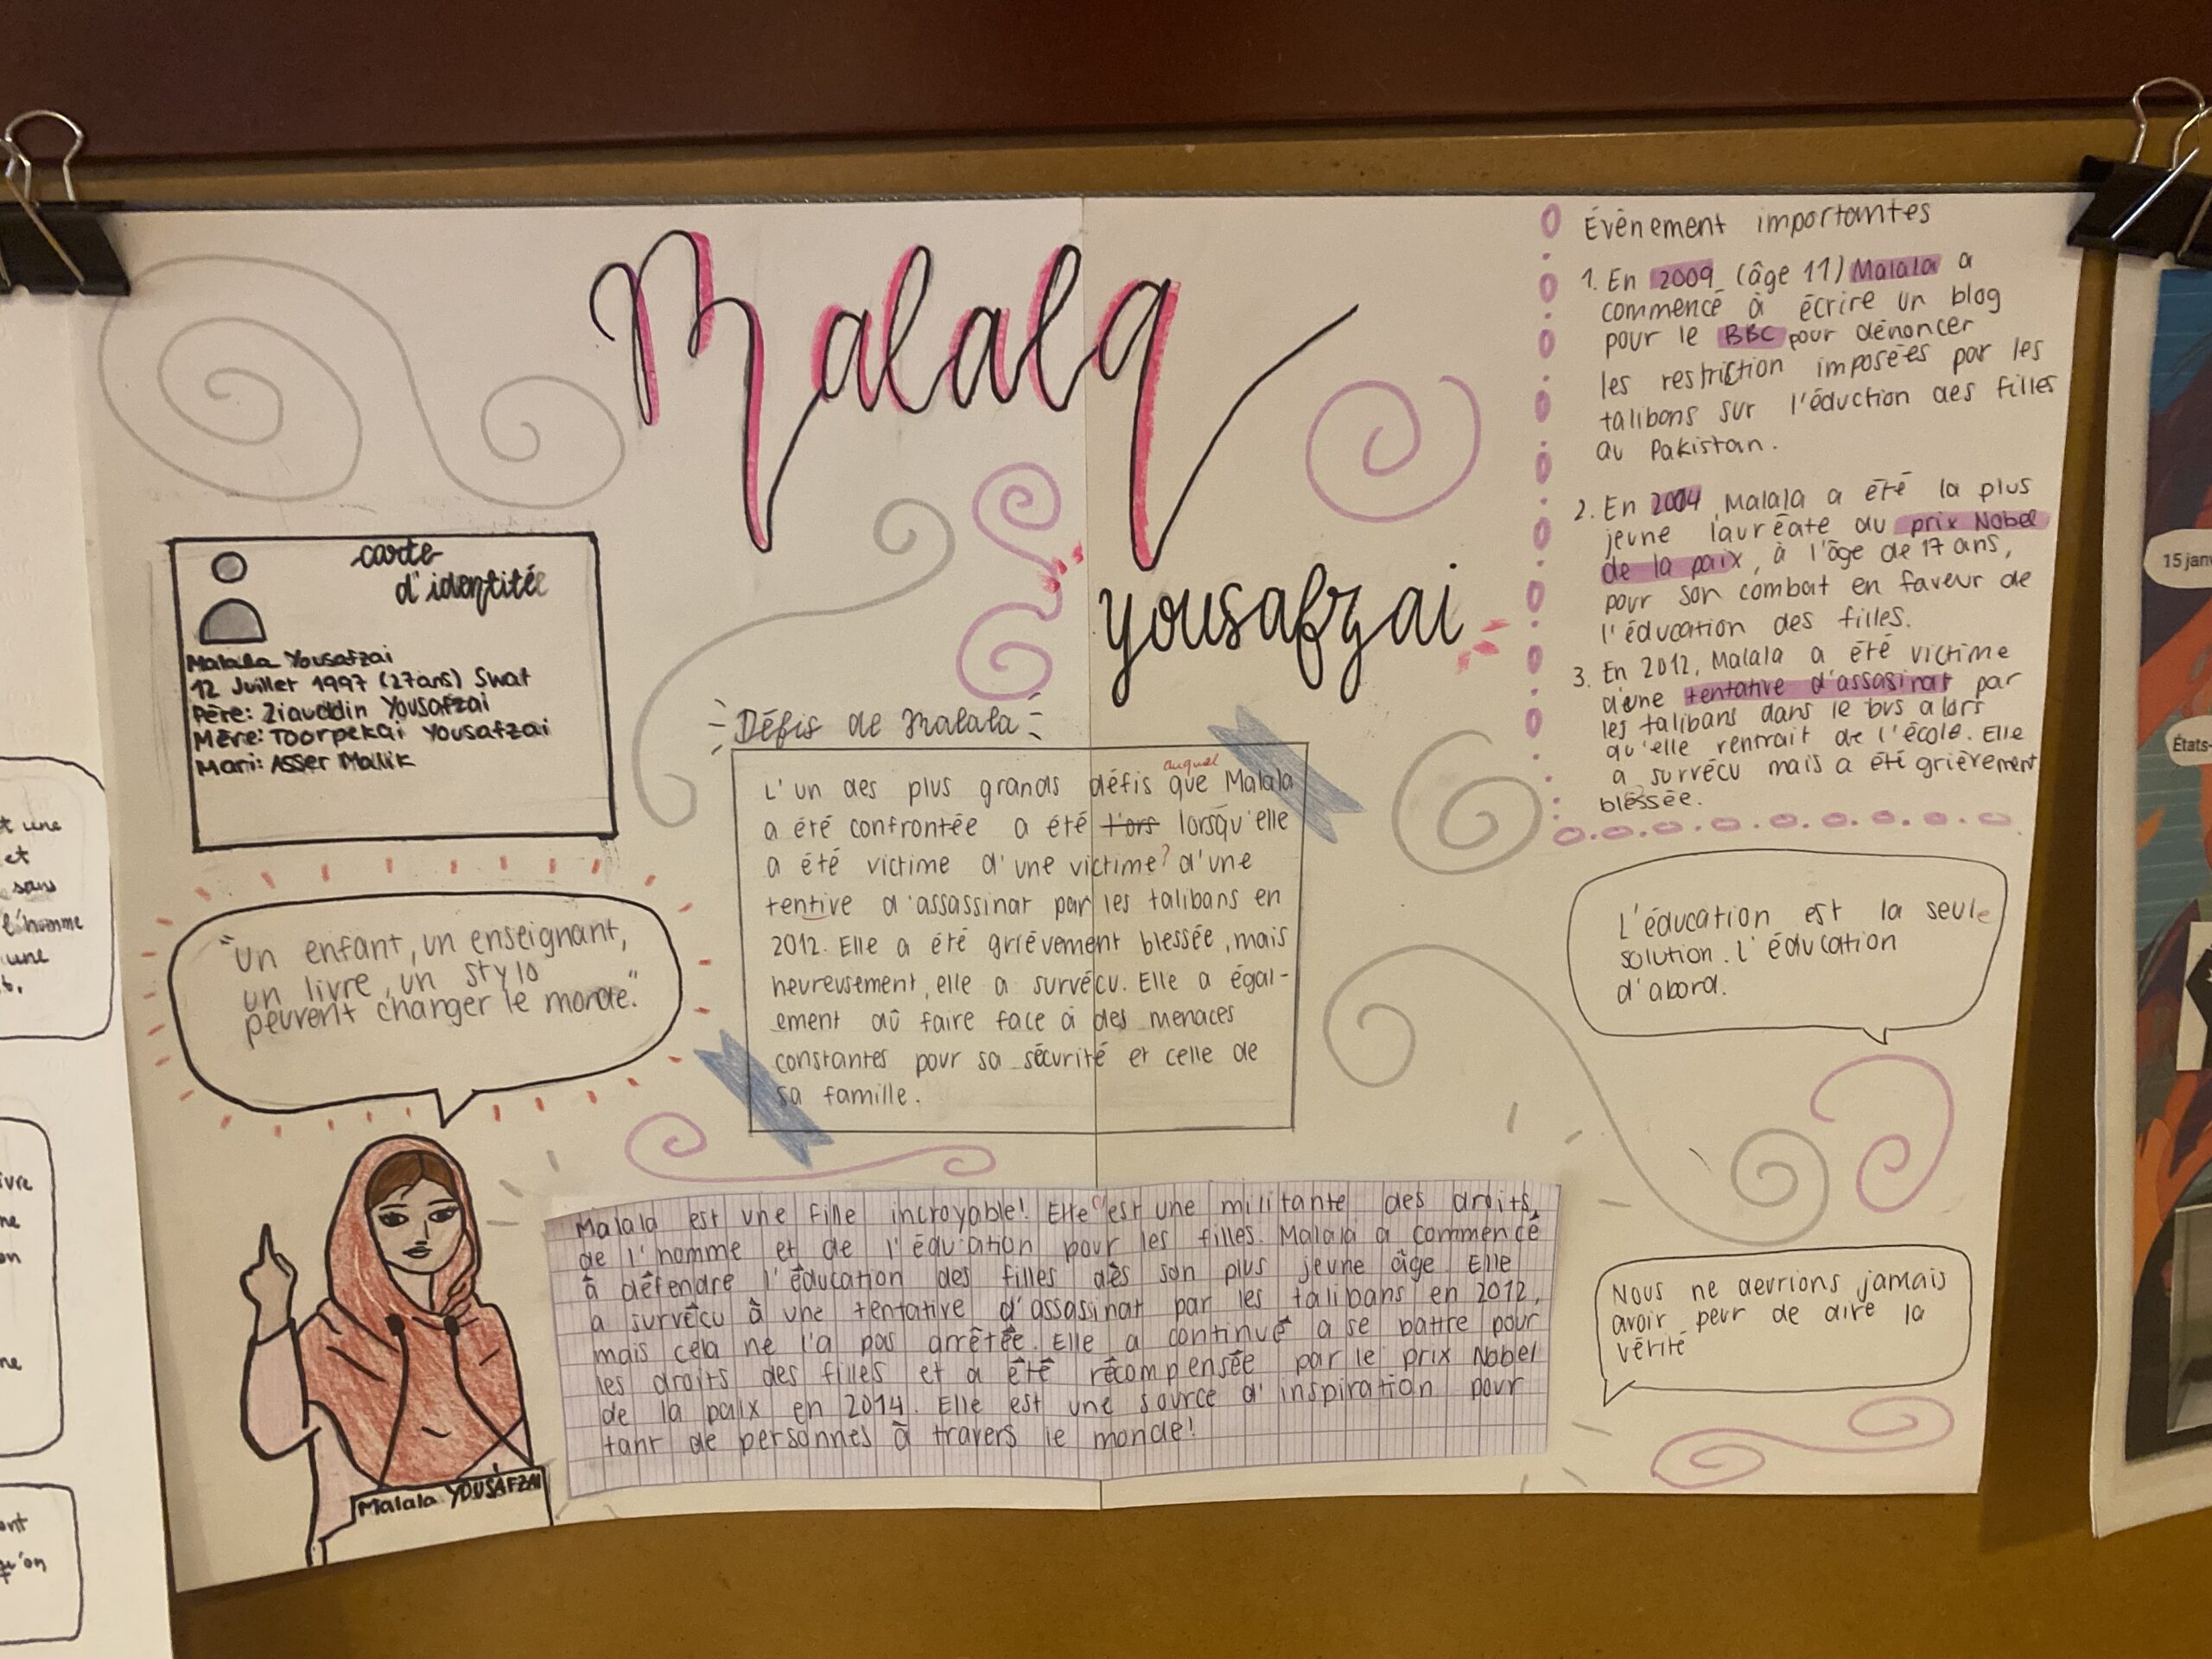 Malala
yousafzai
carte
d'identité
Malala Yousafzai
12 Juillet 1997 (27ans) Swat
Père: Ziauddin Yousafzai
Mère: Toorpekai Yousafzai
Mari: Asser Malik
"Un enfant, un enseignant,
un livre, un stylo
peuvent changer le monde."
Malala YOUSAFZAI
Défis de Malala
auquel
L'un des plus grands défis que Malala
a été confrontée a été l'ors lorsqu'elle
a été victime d'une victime? d'une
tentive d'assassinat par les talibans en
2012. Elle a été grièvement blessée, mais
heureusement, elle a survécu. Elle a égal-
ement dû faire face à des menaces
constantes pour sa sécurité et celle de
sa famille.
Malala est une fille incroyable! Elle est une militante des droits
de l'homme et de l'éducation pour les filles. Malala a commencé
à défendre l'éducation des filles dès son plus jeune âge. Elle
a survécu à une tentative d'assasinat par les talibans en 2012,
mais cela ne l'a pas arrêtée. Elle a continué a se battre pour
les droits des filles et a été récompensée par le prix Nobel
de la paix en 2014. Elle est une source d'inspiration pour
tant de personnes à travers le monde!
Évènement importantes
1. En 2009 (âge 11) Malala a
commencé à écrire un blog
pour le BBC pour dénoncer
les restriction imposées par les
talibans sur l'éduction des filles
au Pakistan.
2. En 2004, Malala a été la plus
jeune lauréate du prix Nobel
de la paix, à l'âge de 17 ans,
pour son combat en faveur de
l'éducation des filles.
3. En 2012, Malala a été victime
d'une tentative d'assasinat par
les talibans dans le bus alors
qu'elle rentrait de l'école. Elle
a survécu mais a été grièrement
bléssée.
L'éducation est la seule
solution. l'éducation
d'abord.
Nous ne devrions jamais
avoir peur de dire la
vérité
t une
et
sans
l'homme
une
ivre
ne
on
ne
ont
qu'on
15 janv
États-